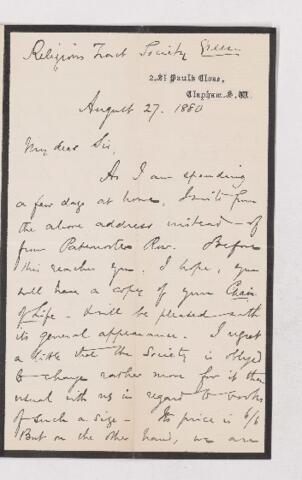 Religious Tract Society
2. St Pauls Close,
Clapham. S.W.
August 27. 1880
My dear Sir,
As I am spending
a few days at home, I write from
the above address instead of
from Paternoster Row. Before
this reaches you, I hope, you
will have a copy of your Chain
of Life & will be pleased with
its general appearance. I regret
a little that the Society is obliged
to charge rather more for it than
usual with us in regard to books
of such a size. Its price is 6/6
But on the other hand, we are